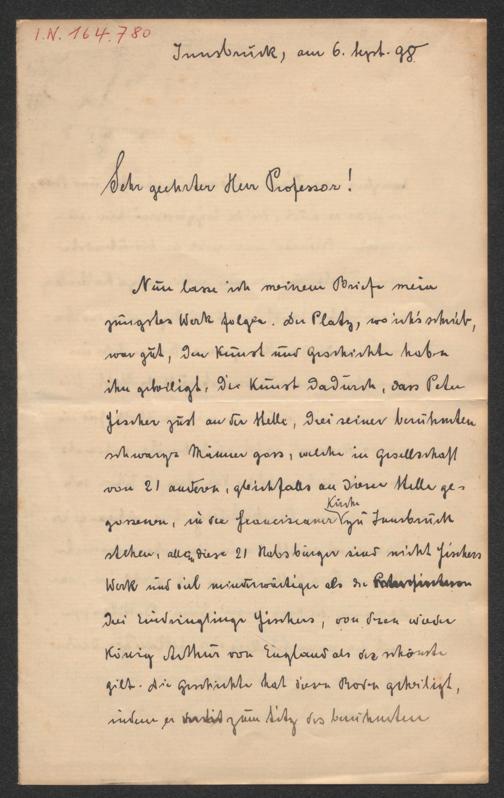 I.N. 164.780
Innsbruck, am 6. Sept. 98
Sehr geehrter Herr Professor!
Nun lasse ich meinem Briefe mein
jüngstes Werk folgen. Der Platz, wo ich's schrieb,
war gut, denn Kunst und Geschichte haben
ihn geheiligt. Die Kunst dadurch, dass Peter
Fischer just an der Stelle, drei seiner berühmten
schwarzen Männer goss, welche in Gesellschaft
von 21 anderen, gleichfalls an dieser Stelle ge-
gossenen, in der Franciscaner Kirche zu Innsbruck
stehen, alle diese 21 Habsburger sind nicht Fischers
Werk und viel minderwärtiger als die
drei Eindringlinge Fischers, von denen wieder
König Arthur von England als der schönste
gilt. Die Geschichte hat diesen Boden geheiligt,
indem er zum Sitz des berühmten